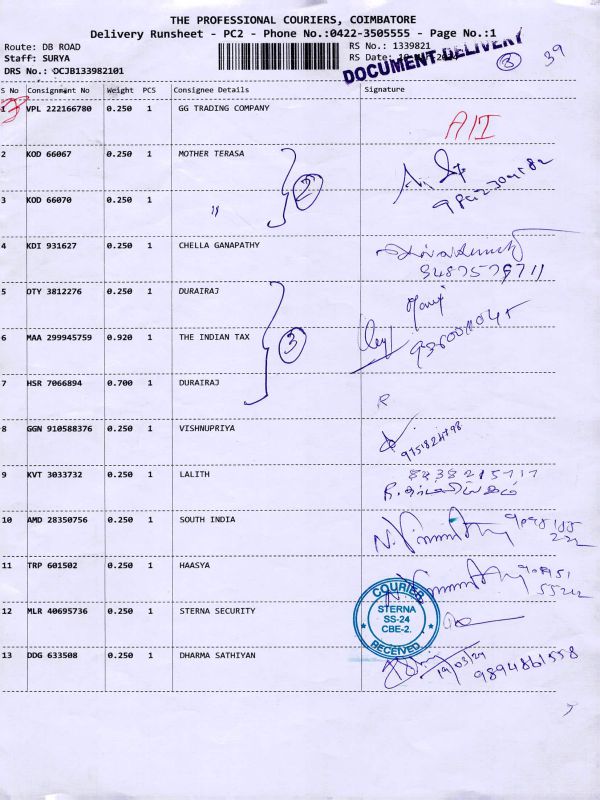 THE PROFESSIONAL COURIERS, COIMBATORE
Delivery Runsheet - PC2 - Phone No.:0422-3505555 - Page No.:1
Route: DB ROAD
RS No.: 1339821
Staff: SURYA
RS Date:
DOCUMENT DELIVERY
8 39
DRS No.: DCJB133982101
S No Consignment No Weight PCS Consignee Details Signature
1 VPL 222166780 0.250 1 GG TRADING COMPANY
2 KOD 66067 0.250 1 MOTHER TERASA
3 KOD 66070 0.250 1 〃
2
4 KDI 931627 0.250 1 CHELLA GANAPATHY
5 DTY 3812276 0.250 1 DURAIRAJ
6 MAA 299945759 0.920 1 THE INDIAN TAX
3
7 HSR 7066894 0.700 1 DURAIRAJ
8 GGN 910588376 0.250 1 VISHNUPRIYA
9 KVT 3033732 0.250 1 LALITH
10 AMD 28350756 0.250 1 SOUTH INDIA
11 TRP 601502 0.250 1 HAASYA
12 MLR 40695736 0.250 1 STERNA SECURITY
COURIER
STERNA
SS-24
CBE-2.
RECEIVED
13 DDG 633508 0.250 1 DHARMA SATHIYAN
19/03/24
9894861558